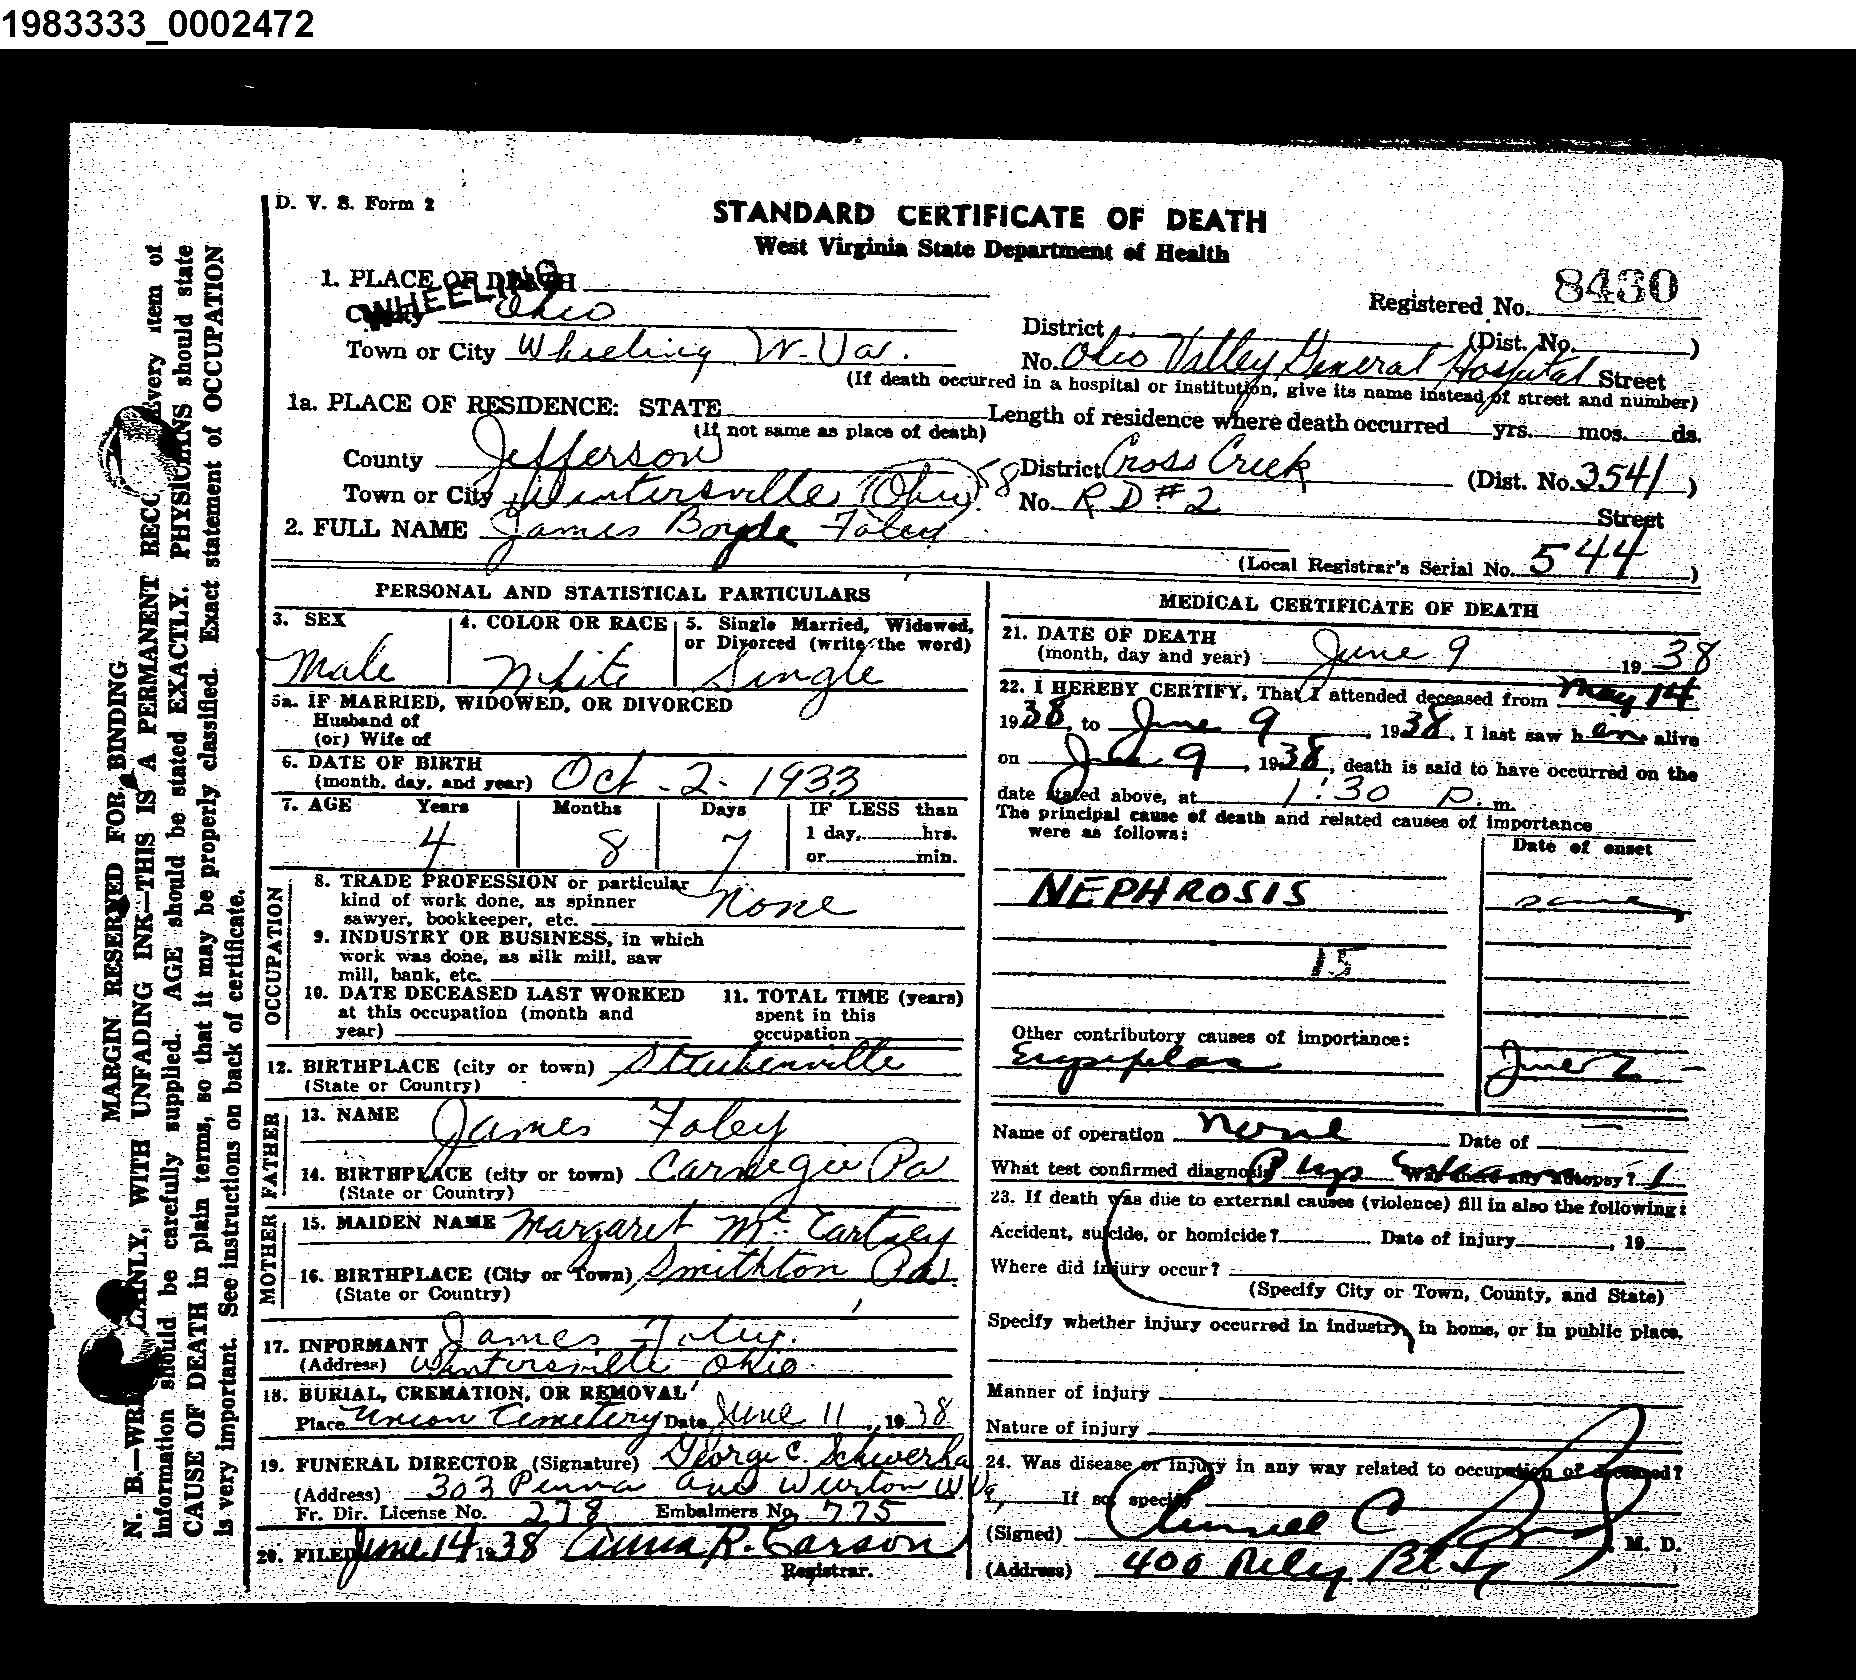 1983333_0002472
D. V. S. Form 2
STANDARD CERTIFICATE OF DEATH
West Virginia State Department of Health
1. PLACE OF DEATH
WHEELING
Registered No. 8430
County Ohio
District (Dist. No. )
Town or City Wheeling W. Va.
No. Ohio Valley General Hospital Street
(If death occurred in a hospital or institution, give its name instead of street and number)
1a. PLACE OF RESIDENCE: STATE
(If not same as place of death)
Length of residence where death occurred yrs. mos. ds.
County Jefferson
District Cross Creek (Dist. No. 3541)
Town or City Wintersville, Ohio 58
No. R D # 2 Street
2. FULL NAME James Boyde Foley
(Local Registrar's Serial No. 544)
PERSONAL AND STATISTICAL PARTICULARS
3. SEX Male
4. COLOR OR RACE White
5. Single Married, Widowed, or Divorced (write the word) Single
5a. IF MARRIED, WIDOWED, OR DIVORCED
Husband of
(or) Wife of
6. DATE OF BIRTH
(month, day, and year) Oct - 2 - 1933
7. AGE Years Months Days IF LESS than
4 8 7 1 day, hrs.
or min.
OCCUPATION
8. TRADE PROFESSION or particular
kind of work done, as spinner
sawyer, bookkeeper, etc. None
9. INDUSTRY OR BUSINESS, in which
work was done, as silk mill, saw
mill, bank, etc.
10. DATE DECEASED LAST WORKED
at this occupation (month and
year)
11. TOTAL TIME (years)
spent in this
occupation
12. BIRTHPLACE (city or town) Steubenville
(State or Country)
FATHER
13. NAME James Foley
14. BIRTHPLACE (city or town) Carnegie Pa
(State or Country)
MOTHER
15. MAIDEN NAME Margaret McCartney
16. BIRTHPLACE (City or Town) Smithton Pa.
(State or Country)
17. INFORMANT James Foley.
(Address) Wintersville Ohio.
18. BURIAL, CREMATION, OR REMOVAL
Place Union Cemetery Date June 11, 1938
19. FUNERAL DIRECTOR (Signature) George C. Schwerha
(Address) 303 Penna Ave Weirton W. Va,
Fr. Dir. License No. 278 Embalmers No. 775
20. FILED June 14 1938 Anna R. Carson
Registrar.
MEDICAL CERTIFICATE OF DEATH
21. DATE OF DEATH
(month, day and year) June 9 1938
22. I HEREBY CERTIFY, That I attended deceased from May 14
1938, to June 9, 1938. I last saw h alive
on 9, 1938, death is said to have occurred on the
date stated above, at 1:30 P. m.
The principal cause of death and related causes of importance
were as follows:
Date of onset
NEPHROSIS
15
Other contributory causes of importance:
Erysipelas June 2
Name of operation None Date of
What test confirmed diagnosis Was there any autopsy?
23. If death was due to external causes (violence) fill in also the following:
Accident, suicide, or homicide? Date of injury , 19
Where did injury occur?
(Specify City or Town, County, and State)
Specify whether injury occurred in industry, in home, or in public place.
Manner of injury
Nature of injury
24. Was disease or injury in any way related to occupation of deceased?
If so, specify
(Signed) M. D.
(Address) 400 Riley
MARGIN RESERVED FOR BINDING
INLY, WITH UNFADING INK—THIS IS A PERMANENT Every item of
information should be carefully supplied. AGE should be stated EXACTLY. PHYSICIANS should state
CAUSE OF DEATH in plain terms, so that it may be properly classified. Exact statement of OCCUPATION
is very important. See instructions on back of certificate.